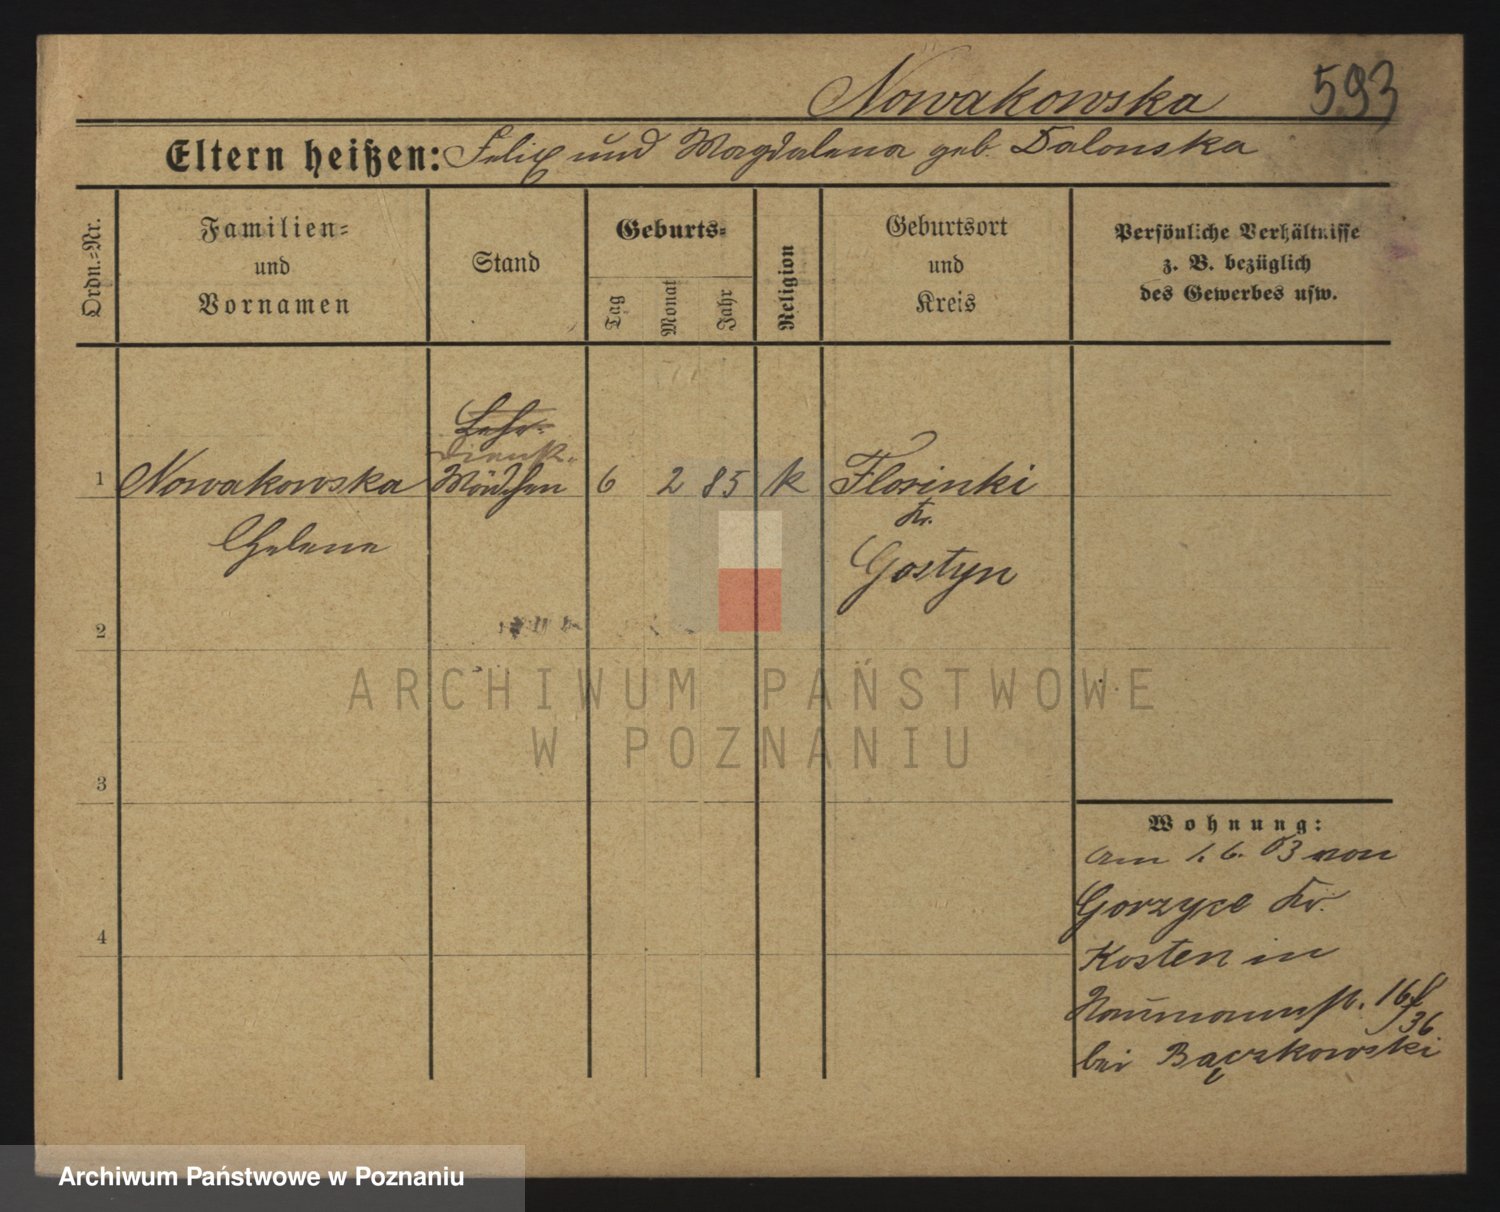 Nowakowska 593
Eltern heißen: Felix und Magdalena geb. Dalonska
Ordn.-Nr.
Familien-
und
Vornamen
Stand
Geburts-
Tag
Monat
Jahr
Religion
Geburtsort
und
Kreis
Persönliche Verhältnisse
z. B. bezüglich
des Gewerbes usw.
Lehr-
Dienst-
1 Nowakowska Mädchen 6 2 85 k Florinki
Kr.
Helena Gostyn
2
ARCHIWUM PAŃSTWOWE
W POZNANIU
3
Wohnung:
am 1. 6. 03 von
Gorzyce Kr.
4
Kosten in
Naumannstr. 16
36
bei Bączkowski
Archiwum Państwowe w Poznaniu